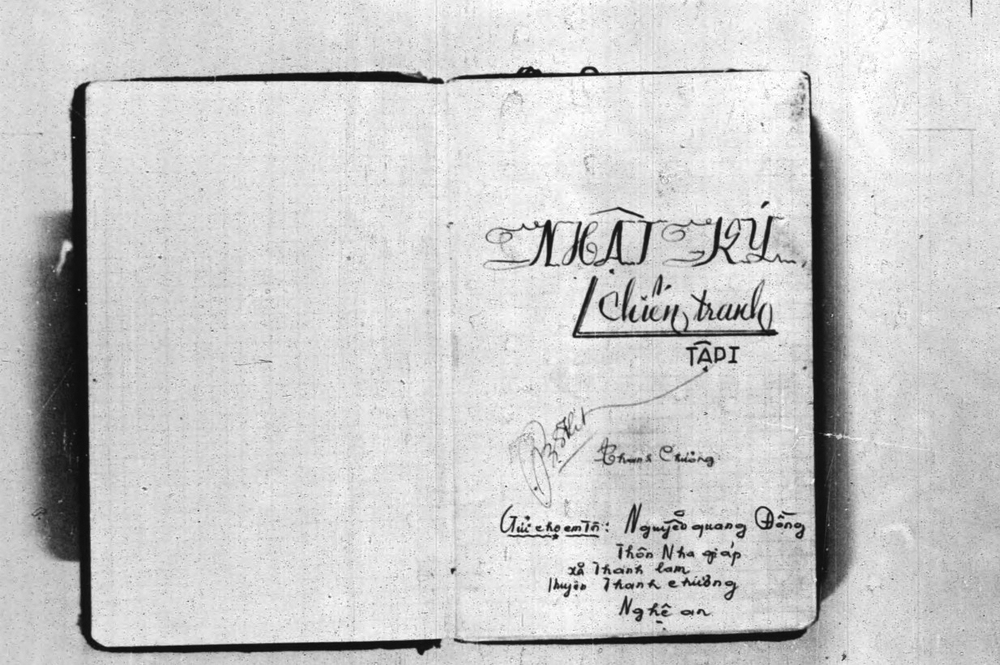 NHẬT KÝ
Chiến tranh
TẬP I
Thanh Chương
Gửi cho em Tá: Nguyễn quang Đồng
Thôn Nha giáp
xã Thanh lam
Huyện Thanh chương
Nghệ an